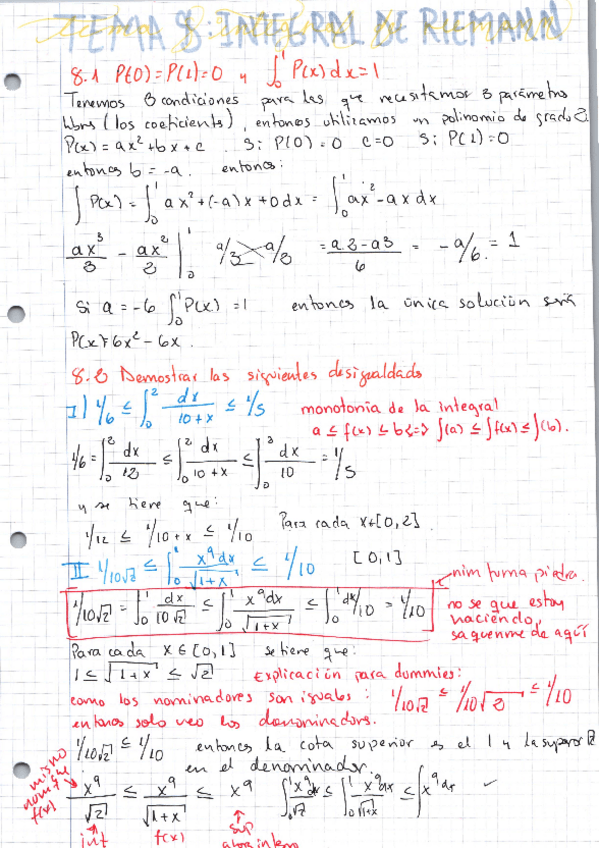 TEMA 8: INTEGRAL DE RIEMANN
8.1 P(0)=P(1)=0 y ∫₀¹ P(x)dx=1
Tenemos 3 condiciones para las que necesitamos 3 parámetros
libres (los coeficientes), entonces utilizamos un polinomio de grado 2.
P(x)=ax²+bx+c. Si P(0)=0 c=0 Si P(1)=0
entonces b=-a. entonces:
∫P(x)=∫₀¹ ax²+(-a)x+0dx=∫₀¹ ax²-ax dx
ax³/3 - ax²/2 |₀¹ a/3 a/2 = a·2-a3/6 = -a/6 = 1
Si a=-6 ∫₀¹P(x)=1 entonces la única solución será
P(x)=6x²-6x.
8.2 Demostrar las siguientes desigualdades
I) 1/6 ≤ ∫₀² dx/10+x ≤ 1/5
monotonía de la integral
a ≤ f(x) ≤ b <=> ∫(a) ≤ ∫f(x) ≤ ∫(b).
1/6 = ∫₀² dx/12 ≤ ∫₀² dx/10+x ≤ ∫₀² dx/10 = 1/5
y se tiene que:
1/12 ≤ 1/10+x ≤ 1/10 Para cada x∈[0,2].
II 1/10√2 ≤ ∫₀¹ x⁹dx/√1+x ≤ 1/10 [0,1]
1/10√2 = ∫₀¹ dx/10√2 ≤ ∫₀¹ x⁹dx/√1+x ≤ ∫₀¹ dx/10 = 1/10
piedra.
no se que estoy
haciendo,
saquenme de aquí
Para cada x∈[0,1] se tiene que:
1 ≤ √1+x ≤ √2 Explicación para dummies:
como los nominadores son iguales: 1/10√2 ≤ 1/10√2 ≤ 1/10
entonces solo veo los denominadores.
1/10√2 ≤ 1/10 entonces la cota superior es el 1 y la superior √2
en el denominador.
mismo
nom que
f(x)
x⁹/√2 ≤ x⁹/√1+x ≤ x⁹ ∫₀¹ x⁹/√2 dx ≤ ∫₀¹ x⁹dx/√1+x ≤ ∫x⁹dx
inf f(x) sup